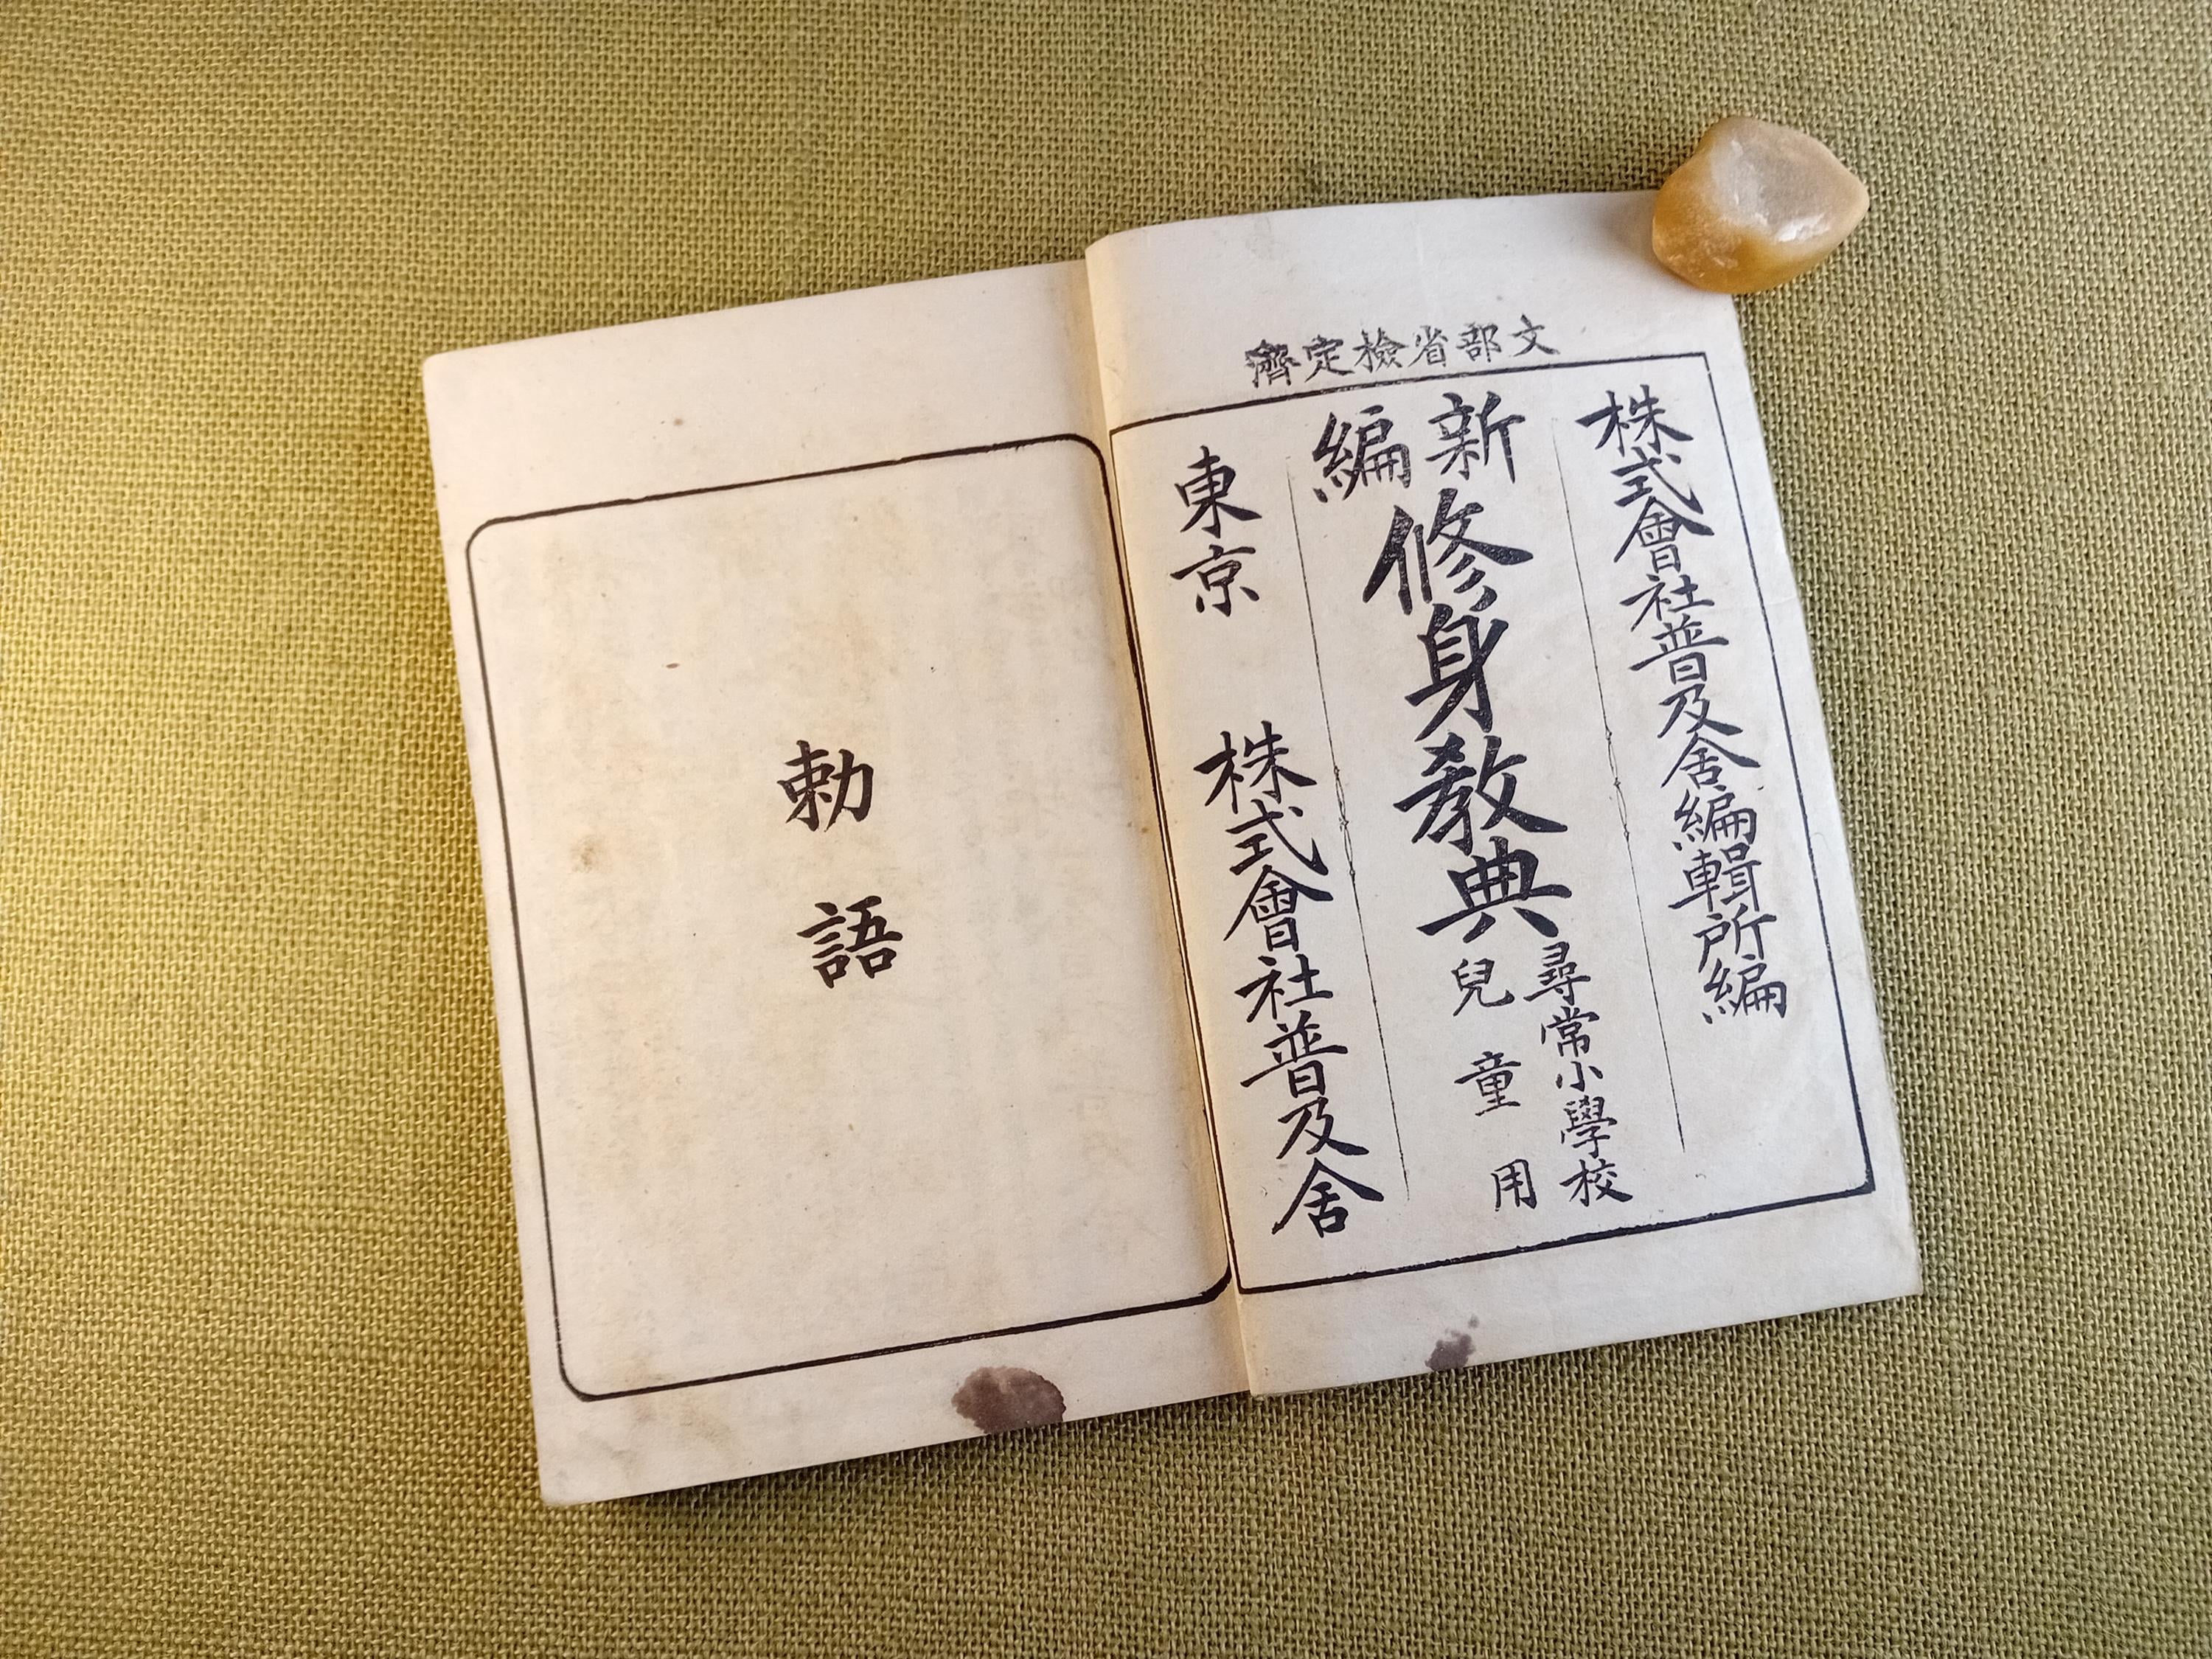 文部省檢定濟
株式會社普及舍編輯所編
新編
修身教典
尋常小學校
兒童用
東京 株式會社普及舍
勅語